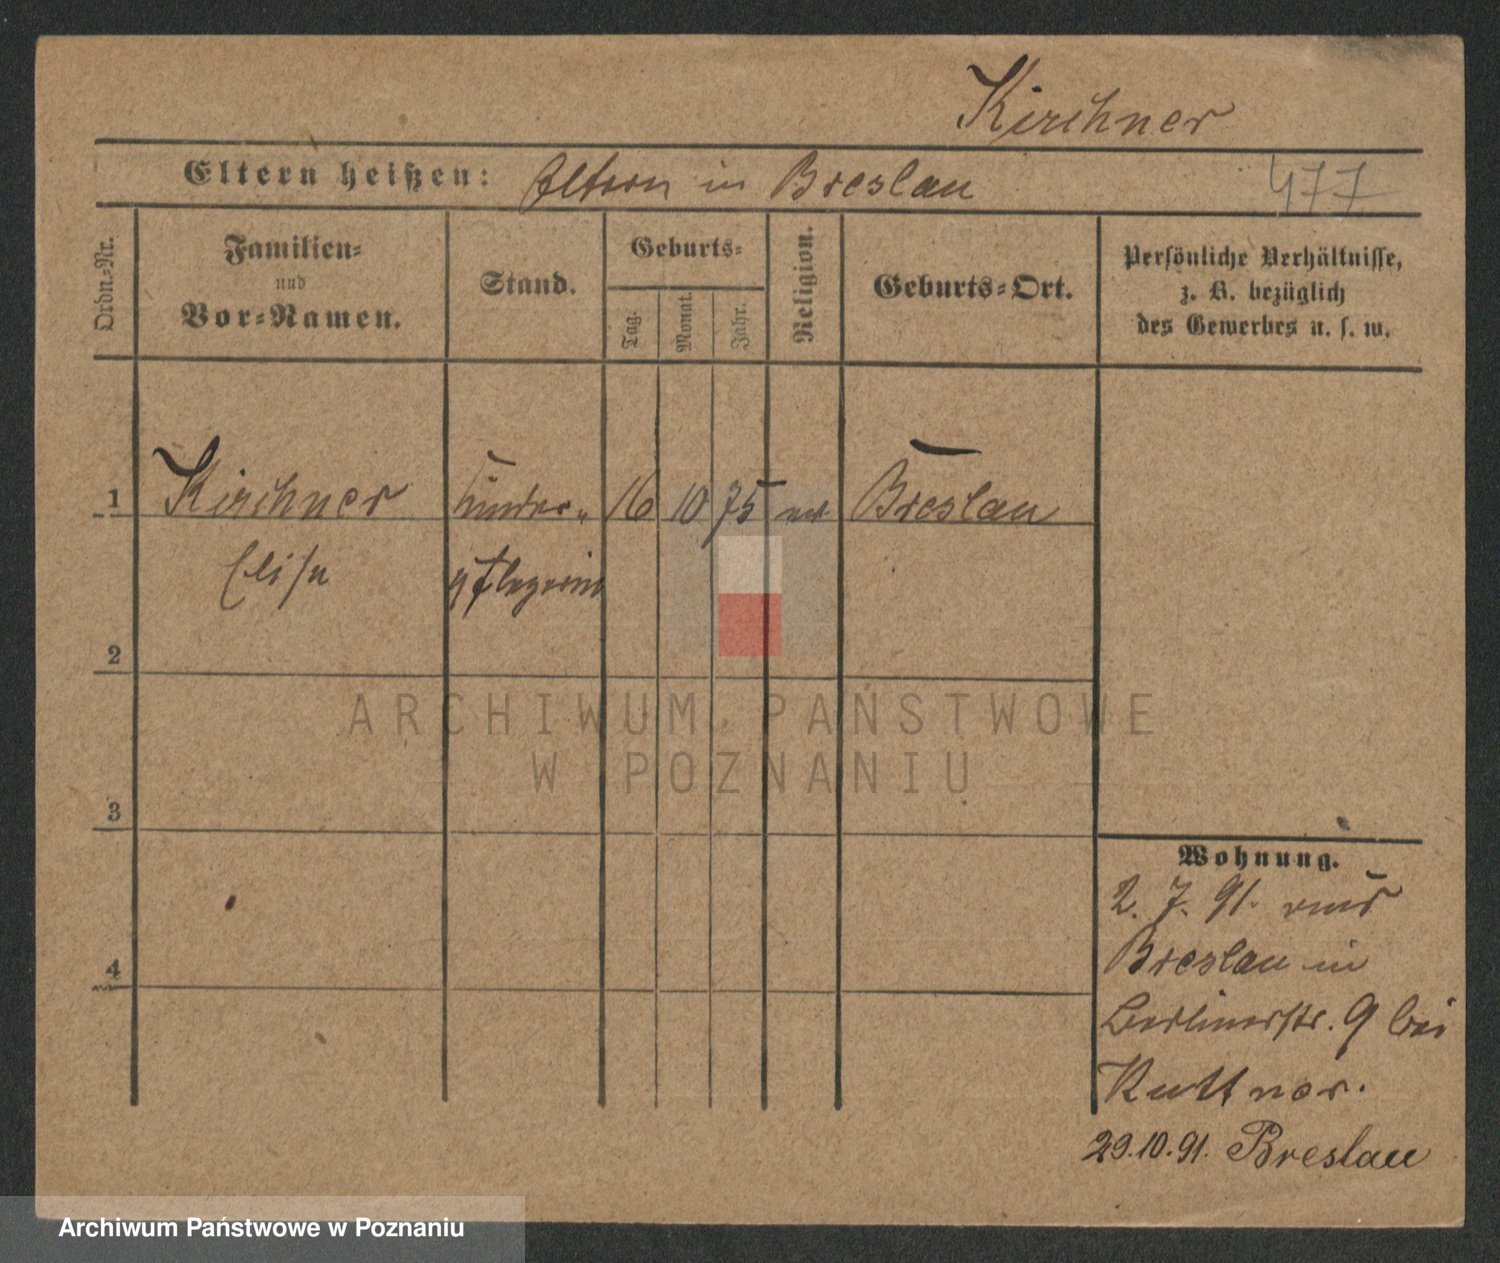 Kirchner
Eltern heißen: Eltern in Breslau
477
Ordn.-Nr.
Familien-
und
Vor-Namen.
Stand.
Geburts-
Tag.
Monat.
Jahr.
Religion.
Geburts-Ort.
Persönliche Verhältnisse,
z. B. bezüglich
des Gewerbes u. s. w.
1 Kirchner Kinder- 16 10 75 ev Breslau
Elise pflegerin
2
ARCHIWUM PAŃSTWOWE
W POZNANIU
3
Wohnung.
2. 7. 91. aus
Breslau in
4
Berlinerstr. 9 bei
Kuttner.
29.10.91. Breslau
Archiwum Państwowe w Poznaniu